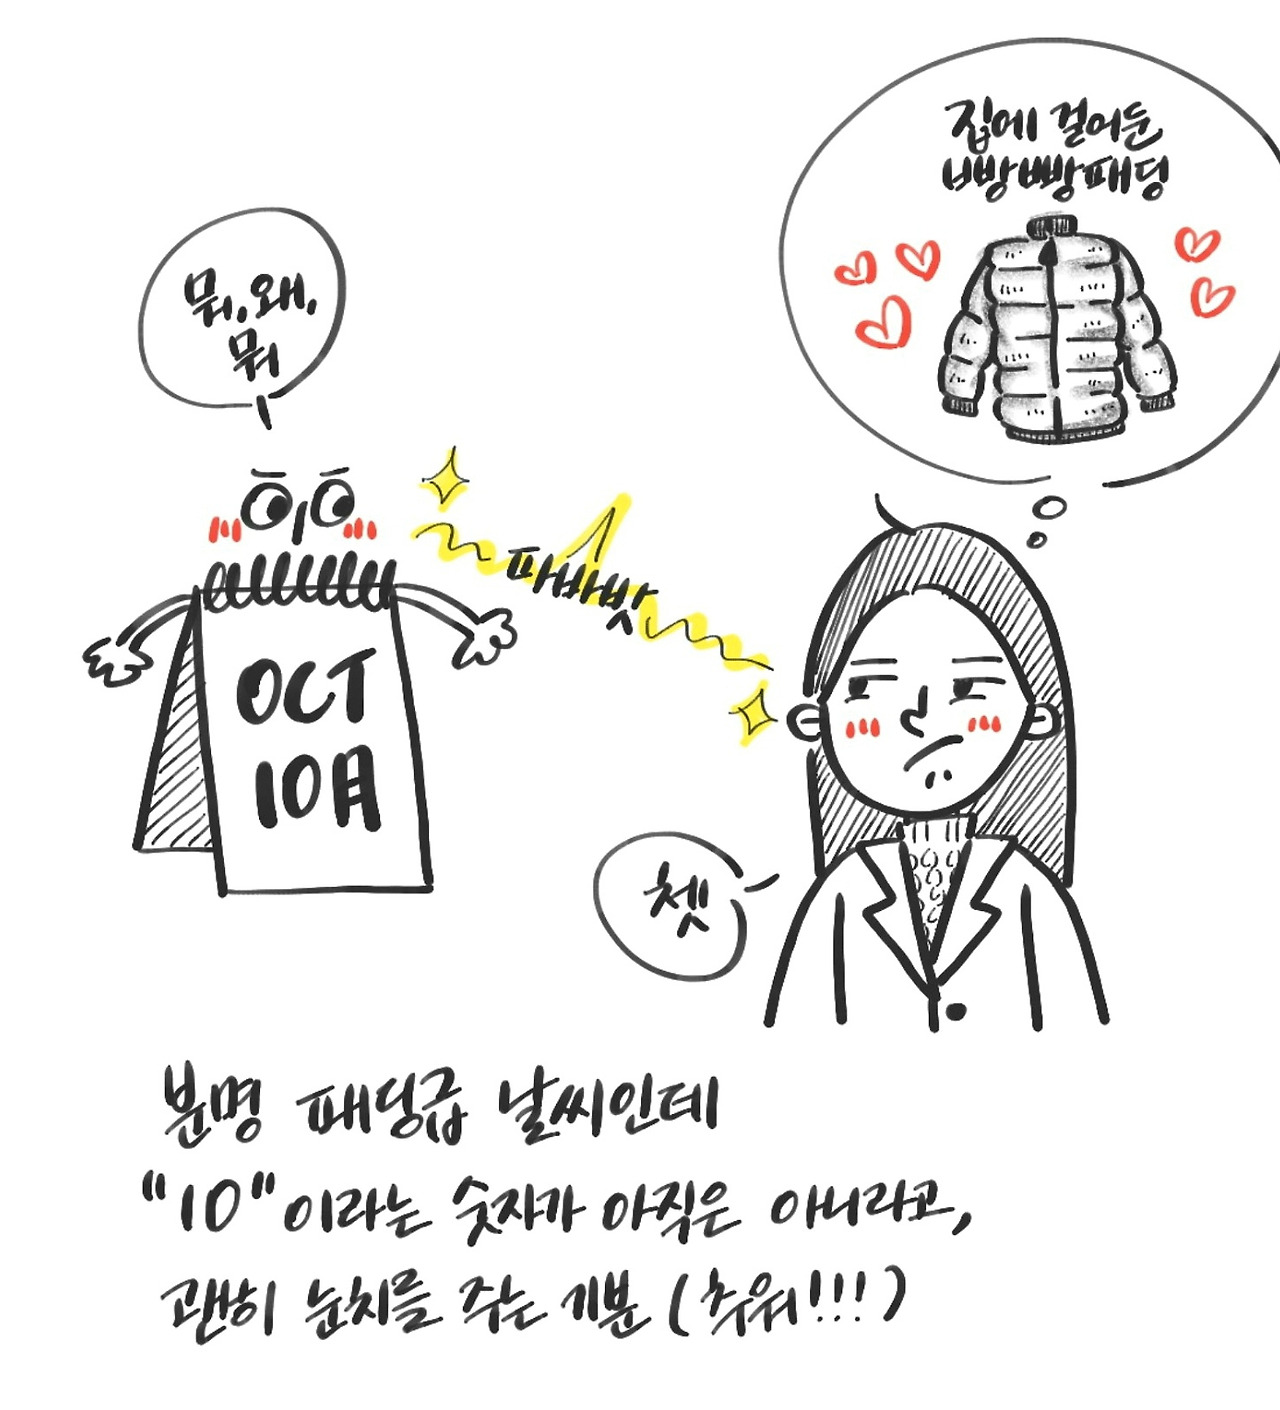 집에 걸어둔
빵빵패딩
뭐, 왜,
뭐
파바밧
OCT
10月
쳇
분명 패딩급 날씨인데
"10"이라는 숫자가 아직은 아니라고,
괜히 눈치를 주는 기분 (추워!!!)